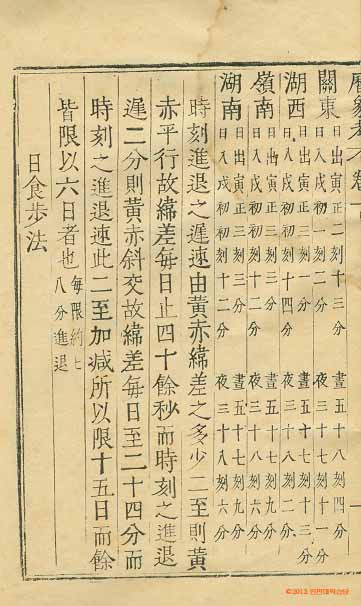 曆象考 卷十
關東 日出寅正二刻十三分 晝五十八刻四分
日入戌初初刻二分 夜三十七刻十一分
湖西 日出寅正三刻一分 晝五十七刻十三分
日入戌初初刻十四分 夜三十八刻二分
嶺南 日出寅正三刻三分 晝五十七刻九分
日入戌初初刻十二分 夜三十八刻六分
湖南 日出寅正三刻三分 晝五十七刻九分
日入戌初初刻十二分 夜三十八刻六分
時刻進退之遲速由黃赤緯差之多少二至則黃
赤平行故緯差每日止四十餘秒而時刻之進退
遲二分則黃赤斜交故緯差每日至二十四分而
時刻之進退速此二至加減所以限十五日而餘
皆限以六日者也 每限約七八分進退
日食步法
©2013 인천대학습당